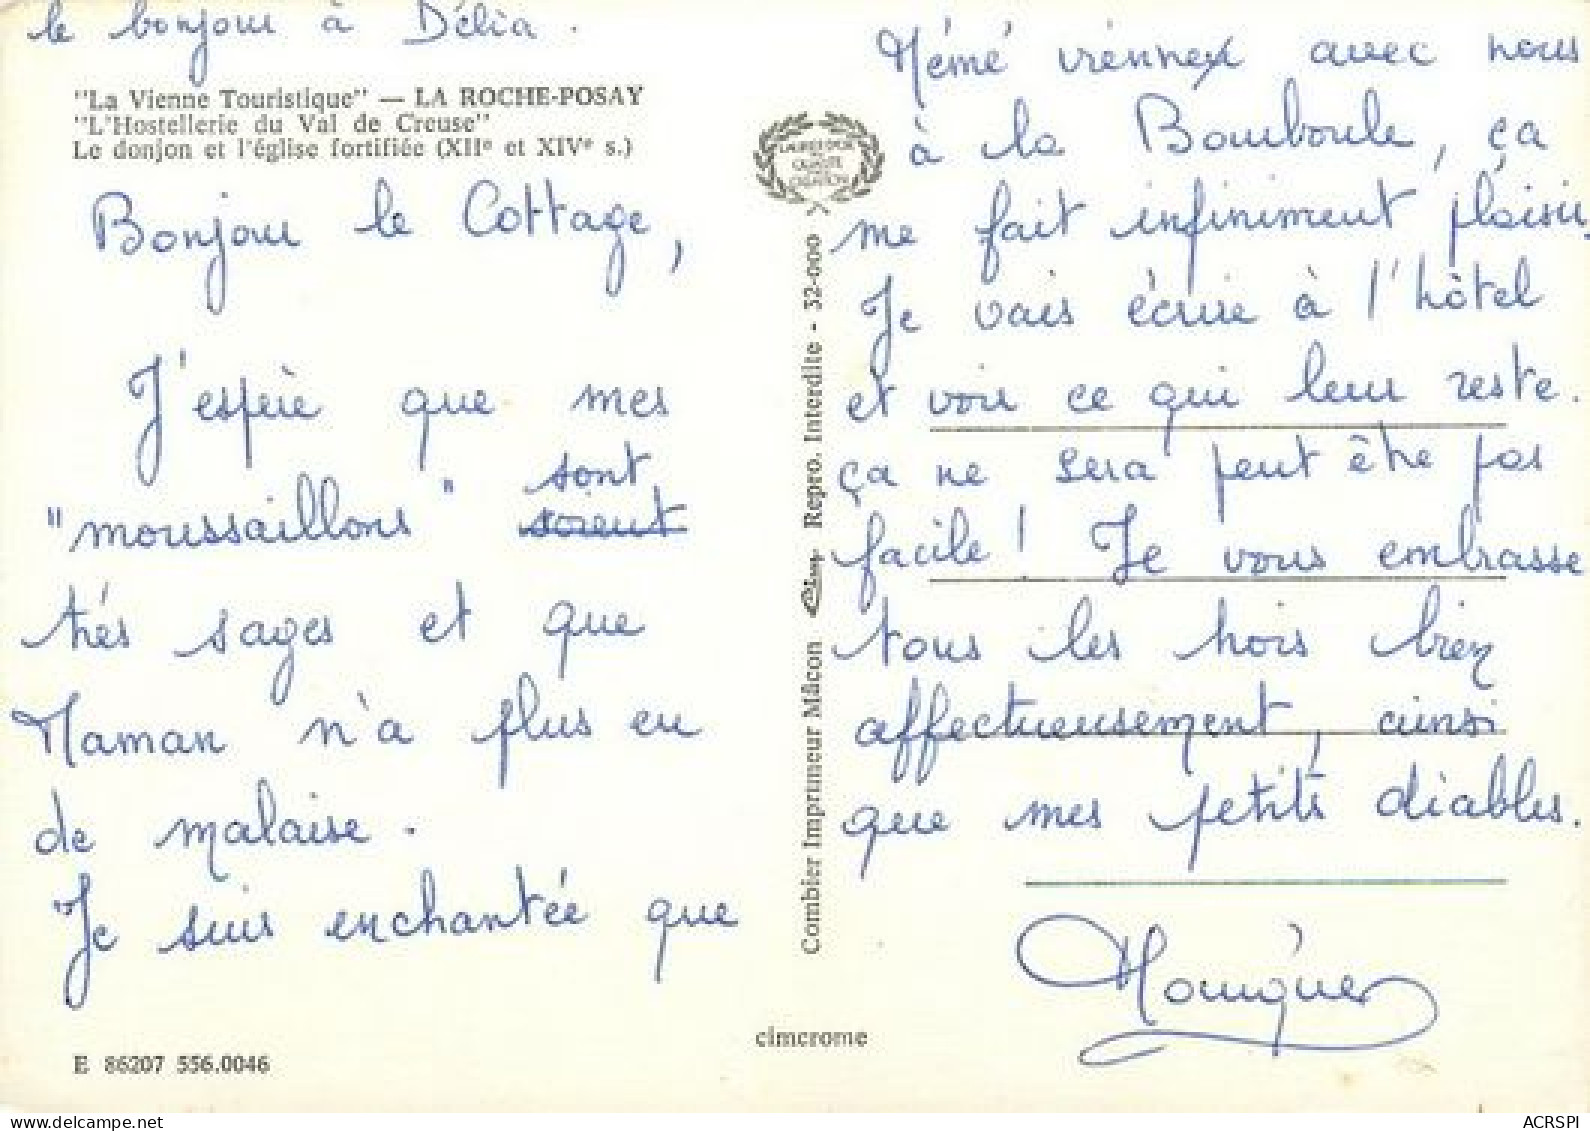 le bonjour à Délia.
"La Vienne Touristique" — LA ROCHE-POSAY
"L'Hostellerie du Val de Creuse"
Le donjon et l'église fortifiée (XIIe et XIVe s.)
Bonjour le Cottage,
J'espère que mes
sont
"moussaillons" soient
très sages et que
Maman n'a plus eu
de malaise.
Je suis enchantée que
E 86207 556.0046
LAURÉAT D'OR
QUALITÉ
CRÉATION
Combier Imprimeur Mâcon Repro. Interdite - 32-000
cimcrome
Mémé viennex avec nous
à la Bourboule, ça
me fait infiniment plaisir.
Je vais écrire à l'hôtel
et voir ce qui leur reste.
ça ne sera peut être pas
facile! Je vous embrasse
tous les trois bien
affectueusement, ainsi
que mes petits diables.
delcampe.net
ACRSPI